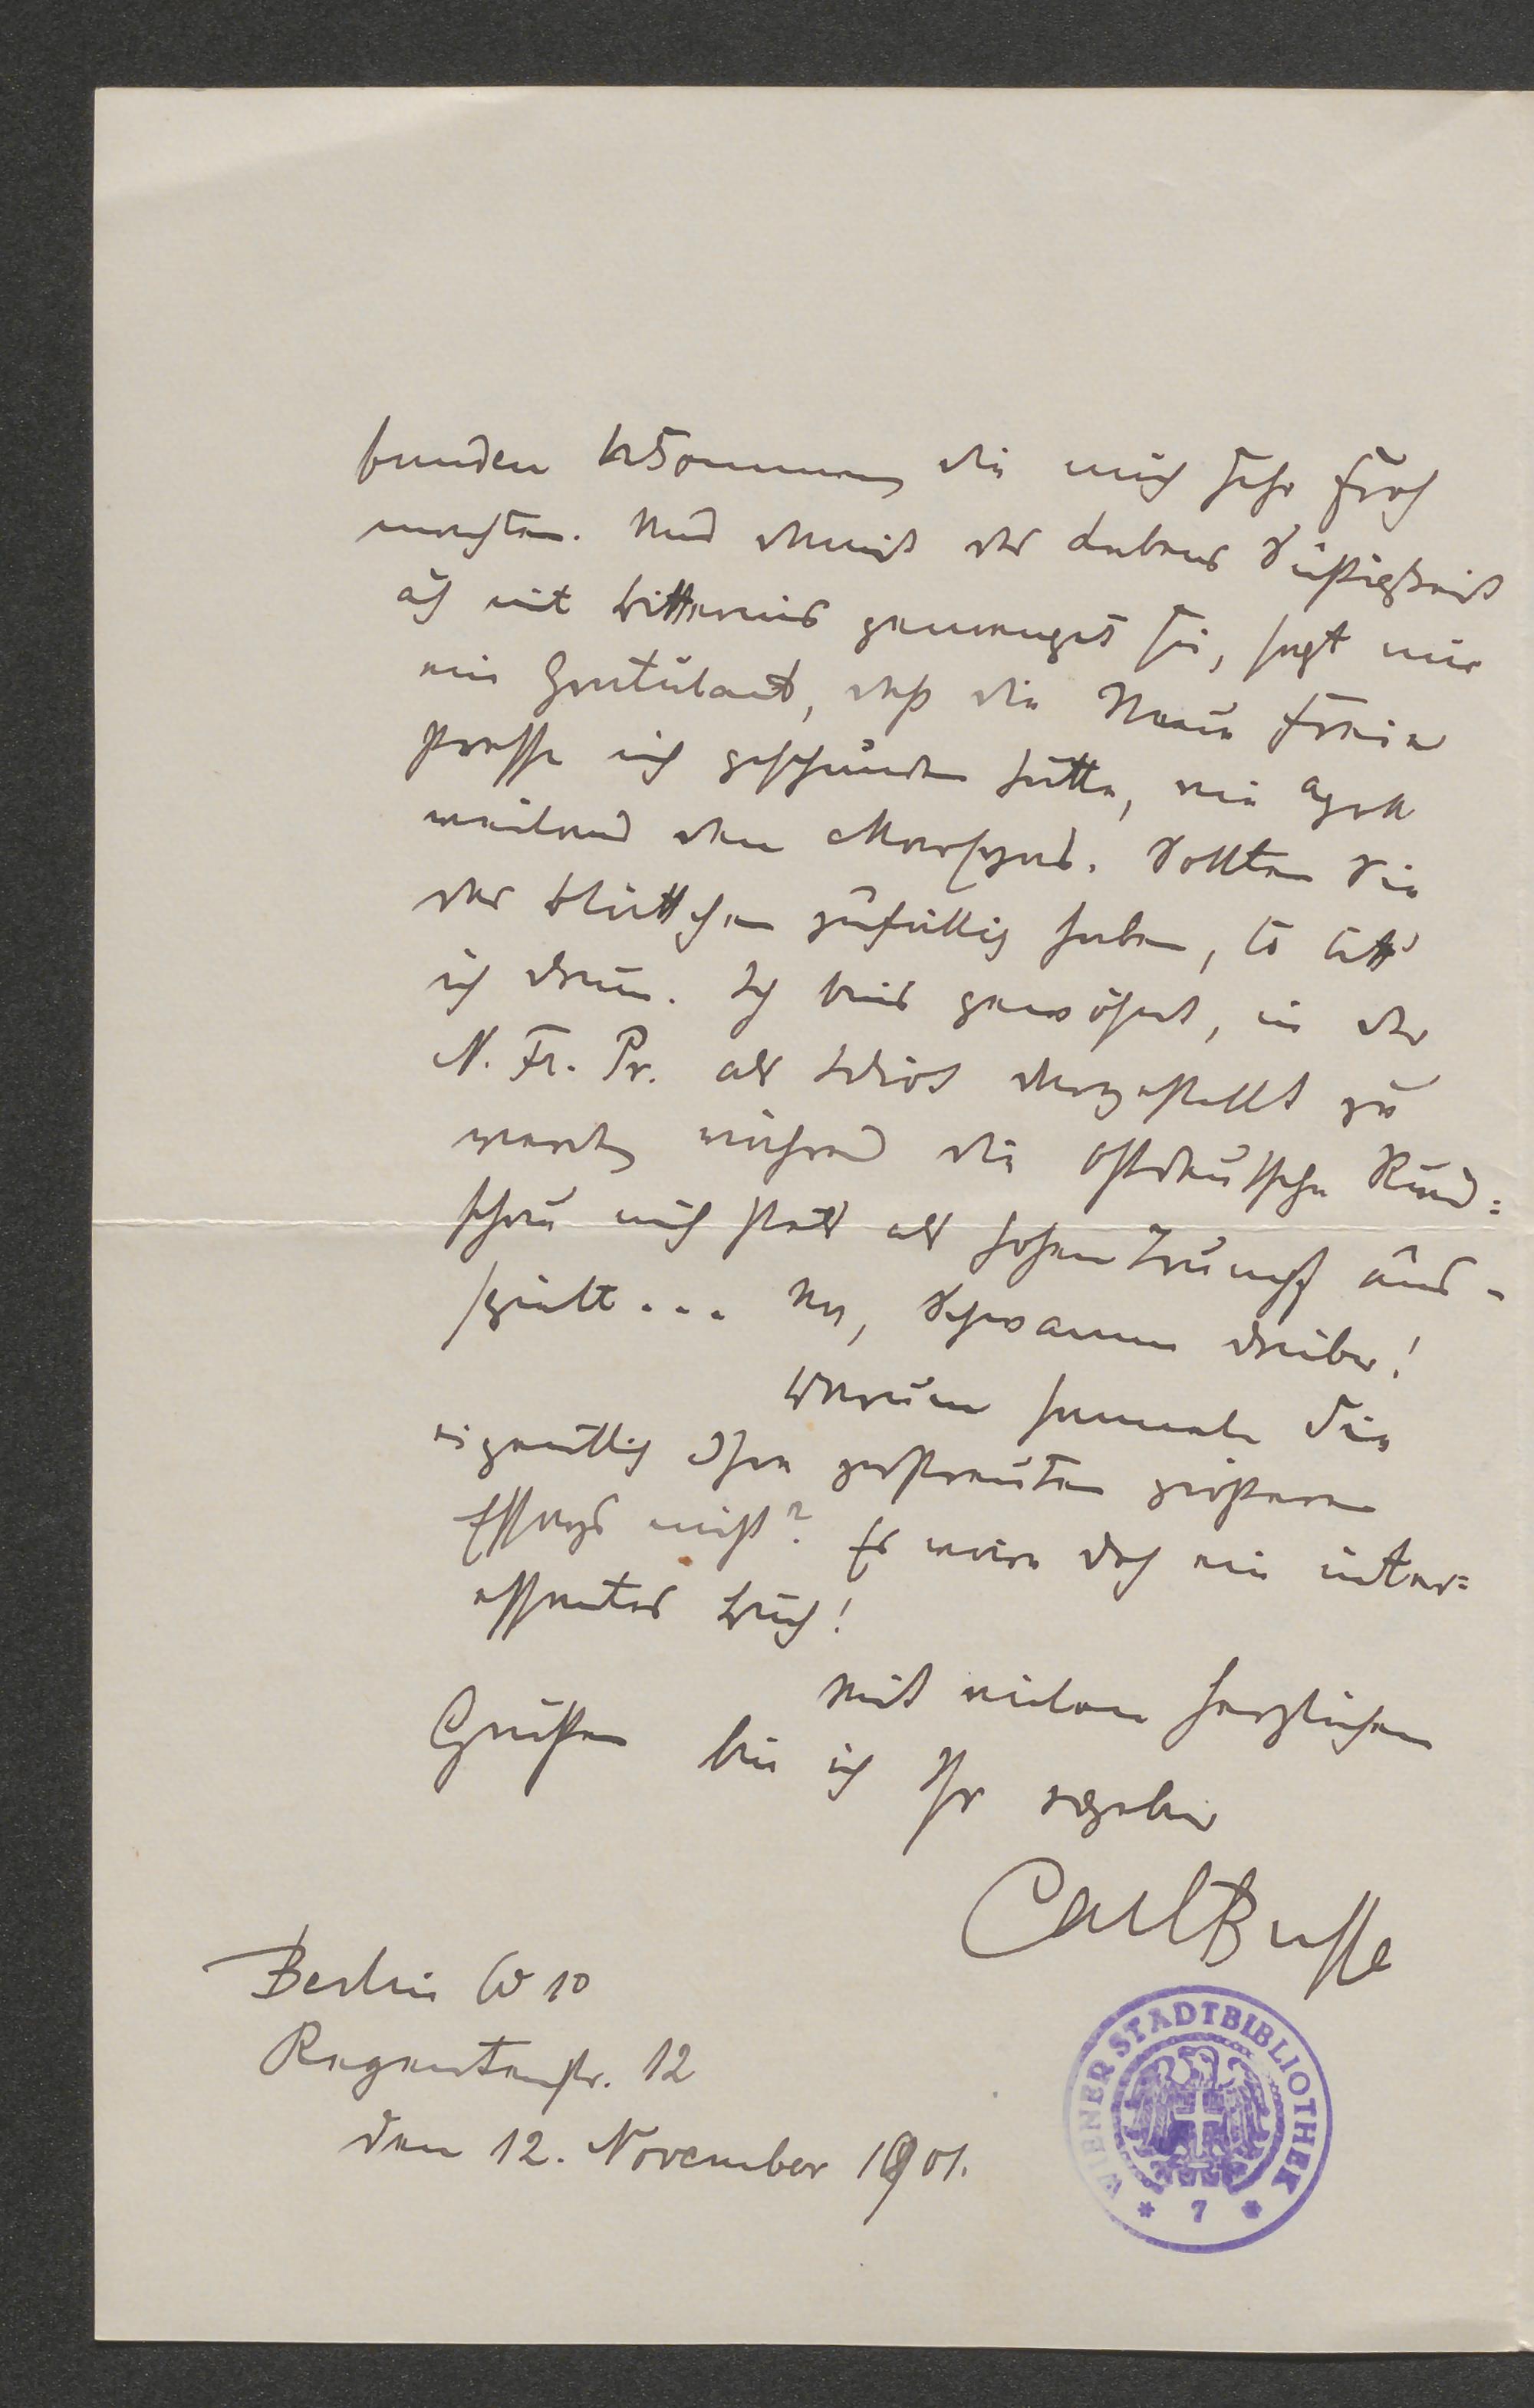 funden bekommen, die mich sehr froh
machten. Und damit des Lebens Süßigkeit
ach mit Bitternis gemenget sei, sagt mir
ein Gratulant, daß die Neue Freie
Presse mich geschunden hätte, wie Apoll
weiland den Marsyas. Sollten Sie
das Blättchen zufällig haben, so bitt'
ich drum. Ich bins gewöhnt, in der
N. Fr. Pr. als Idiot dargestellt zu
werden, während die Ostdeutsche Rund=
schau mich stets als hohen Trumpf aus-
spielt... Na, Schwamm drüber!
Warum sammeln Sie
eigentlich Ihre zerstreuten größeren
Essays nicht? Es wäre doch ein inter=
essantes Buch!
Mit vielen herzlichen
Grüßen bin ich Ihr ergebner
Carl Busse
Berlin W 10
Regentenstr. 12
den 12. November 1901.
WIENER STADTBIBLIOTHEK
* 7 *